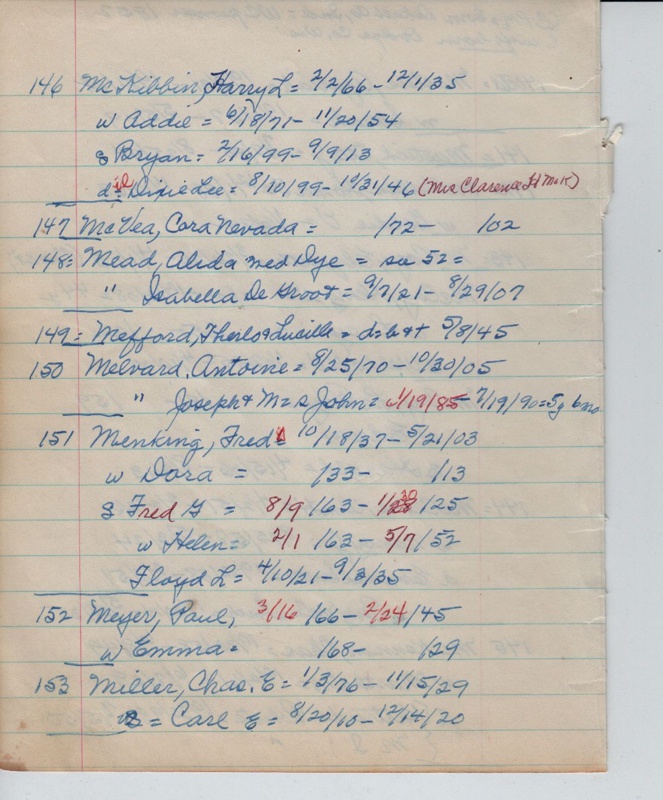 146 McKibbin, Harry L = 2/2/66 - 12/1/35
w Addie = 6/18/71 - 11/20/54
s Bryan = 2/16/99 - 9/9/13
d-il = Dixie Lee = 8/10/99 - 10/31/46 (Mrs Clarence H McK)
147 McVea, Cora Nevada = /72 - /02
148 = Mead, Alida ned Dye = see 52 =
" Isabella De Groot = 9/7/21 - 8/29/07
149 = Mefford, Therlo & Lucille = d = b & t 5/8/45
150 Melvard, Antoine = 8/25/70 - 10/30/05
" Joseph & M = s John = 1/19/85 - 7/19/90 = 5y 6mo
151 Menking, Fred = 10/18/37 - 5/21/03
w Dora = /33 - /13
s Fred G = 8/9 /63 - 1/30 /25
w Helen = 2/1 /62 - 5/7/52
Floyd L = 4/10/21 - 9/3/35
152 Meyer, Paul, 3/16 /66 - 2/24/45
w Emma = /68 - /29
153 Miller, Chas. E = 1/3/76 - 11/15/29
s = Carl E = 8/20/10 - 12/14/20